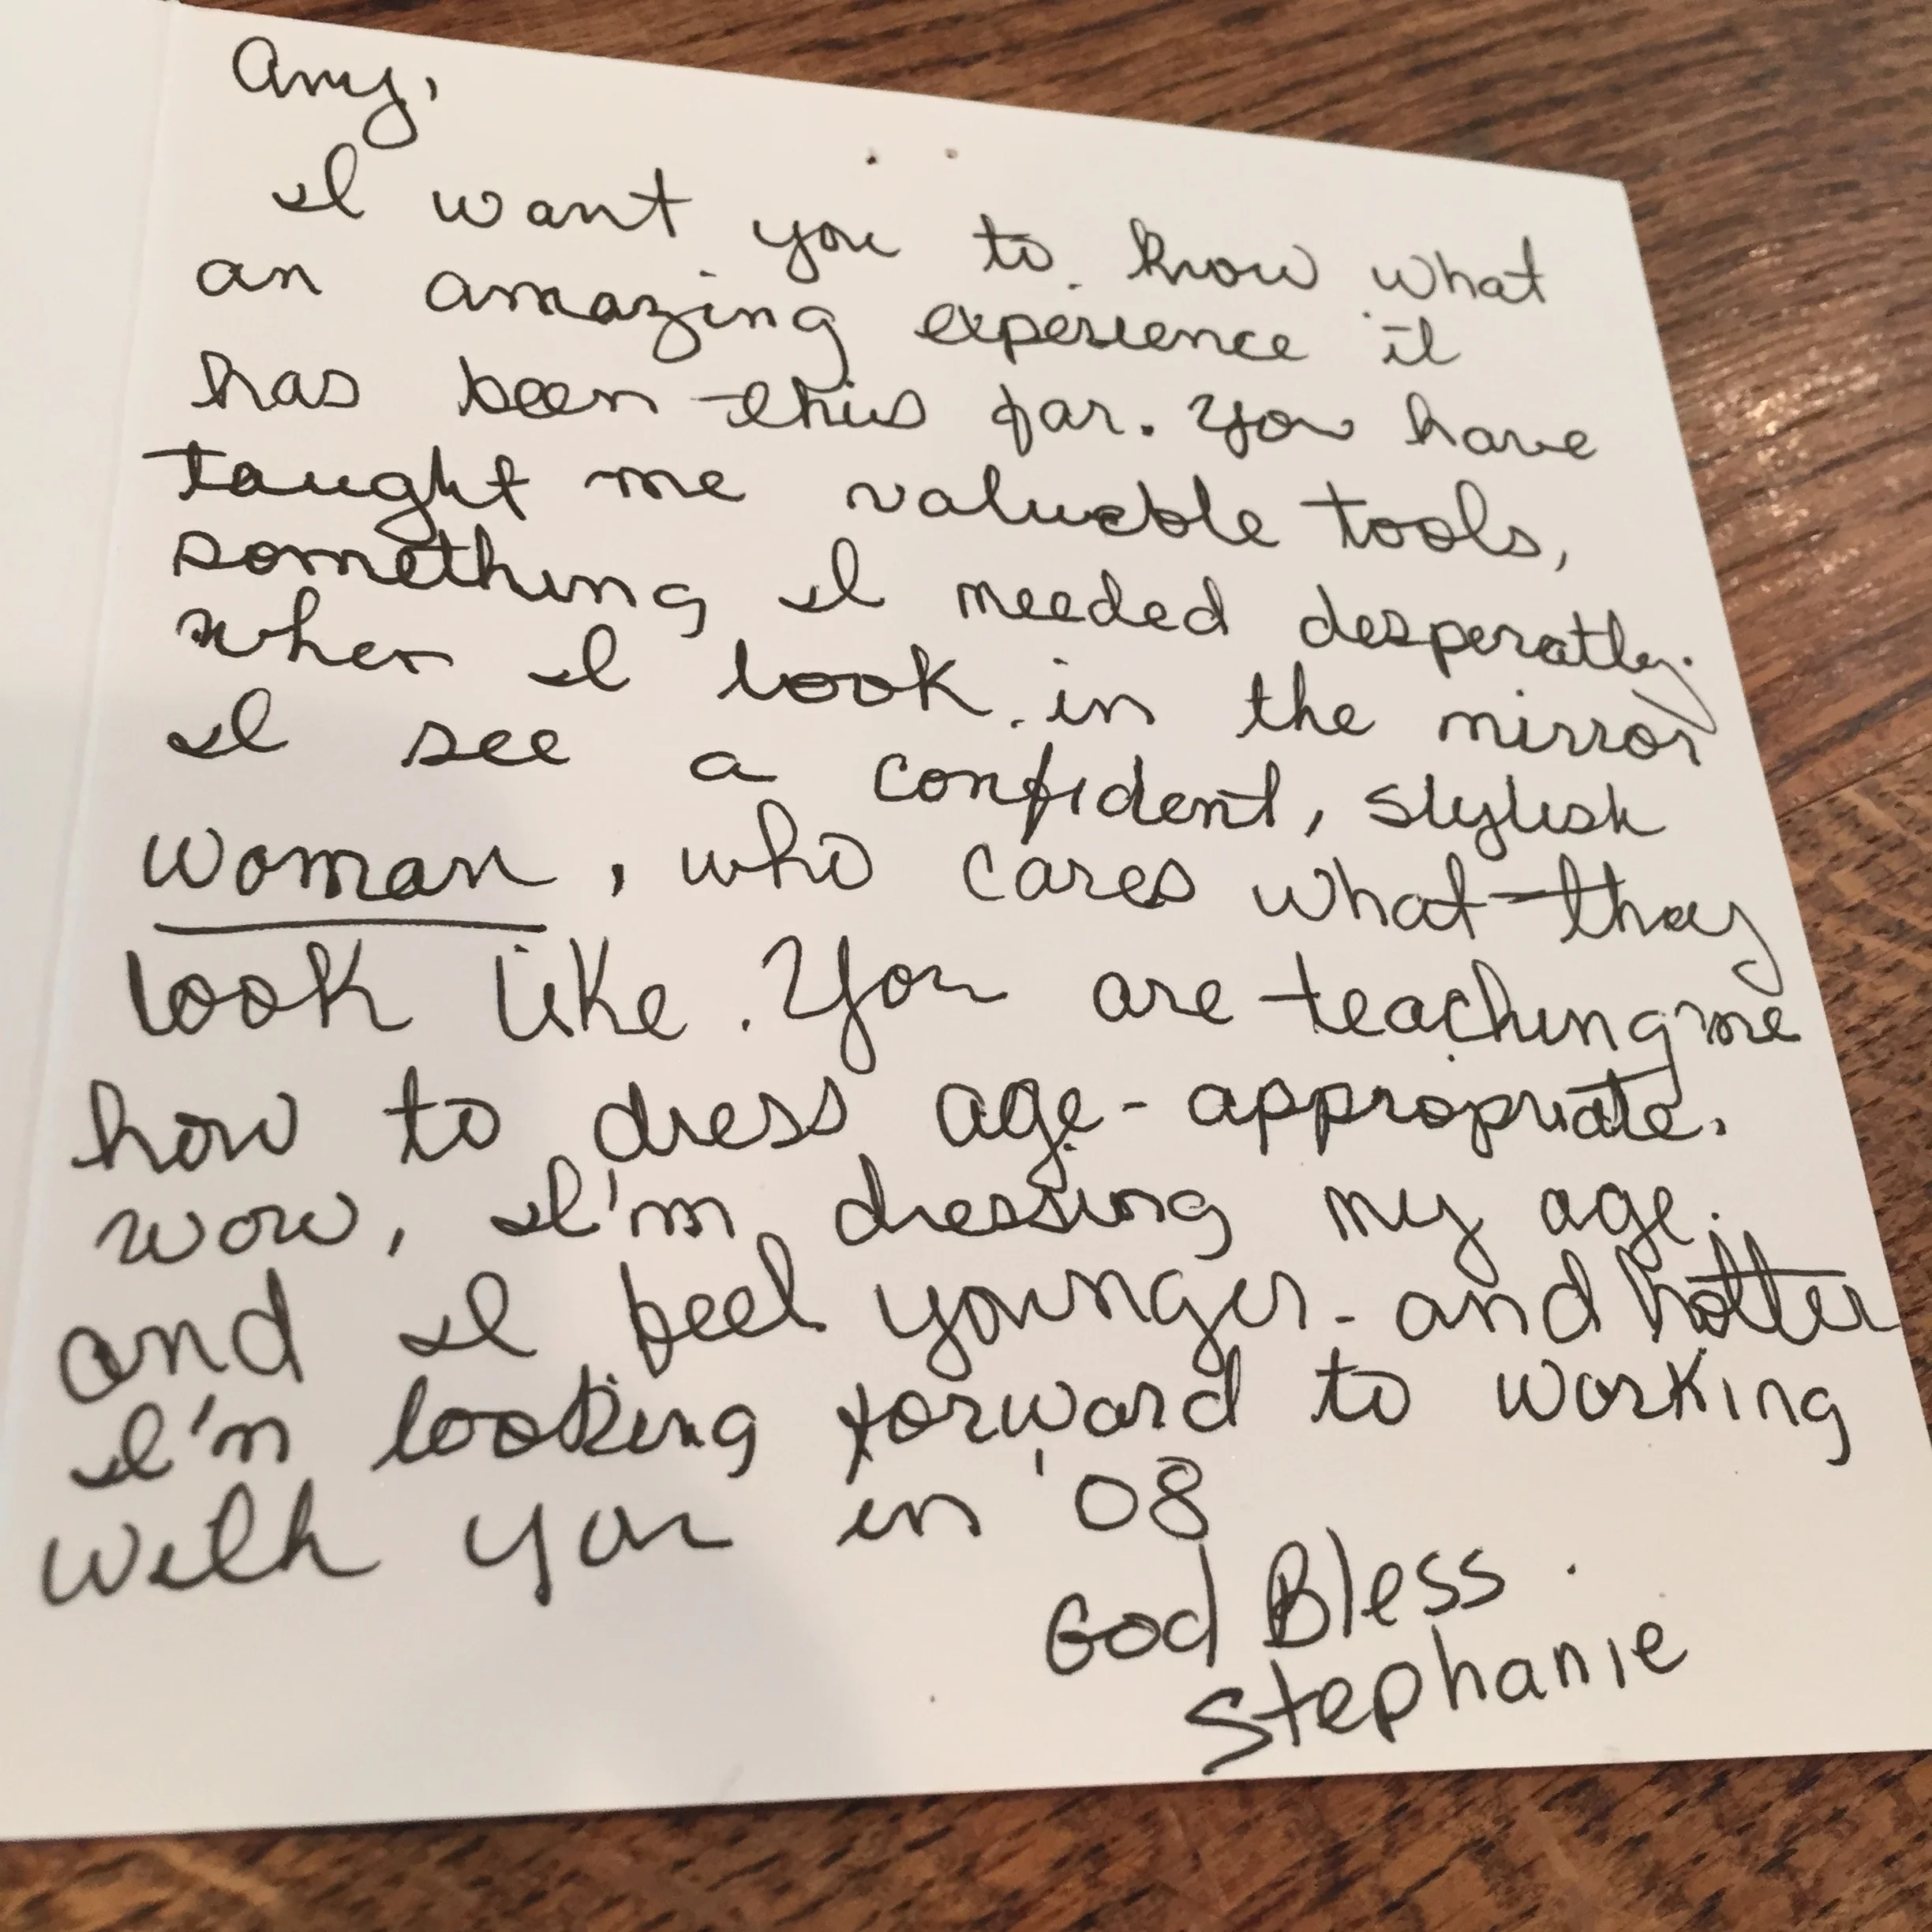 Amy,
I want you to know what
an amazing experience it
has been this far. You have
taught me valuable tools,
something I needed desperatly.
when I look in the mirror
I see a confident, stylish
woman, who cares what they
look like. You are teaching me
how to dress age-appropriate.
wow, I'm dressing my age.
and I feel younger - and hotter
I'm looking forward to working
with you in '08
God Bless.
Stephanie